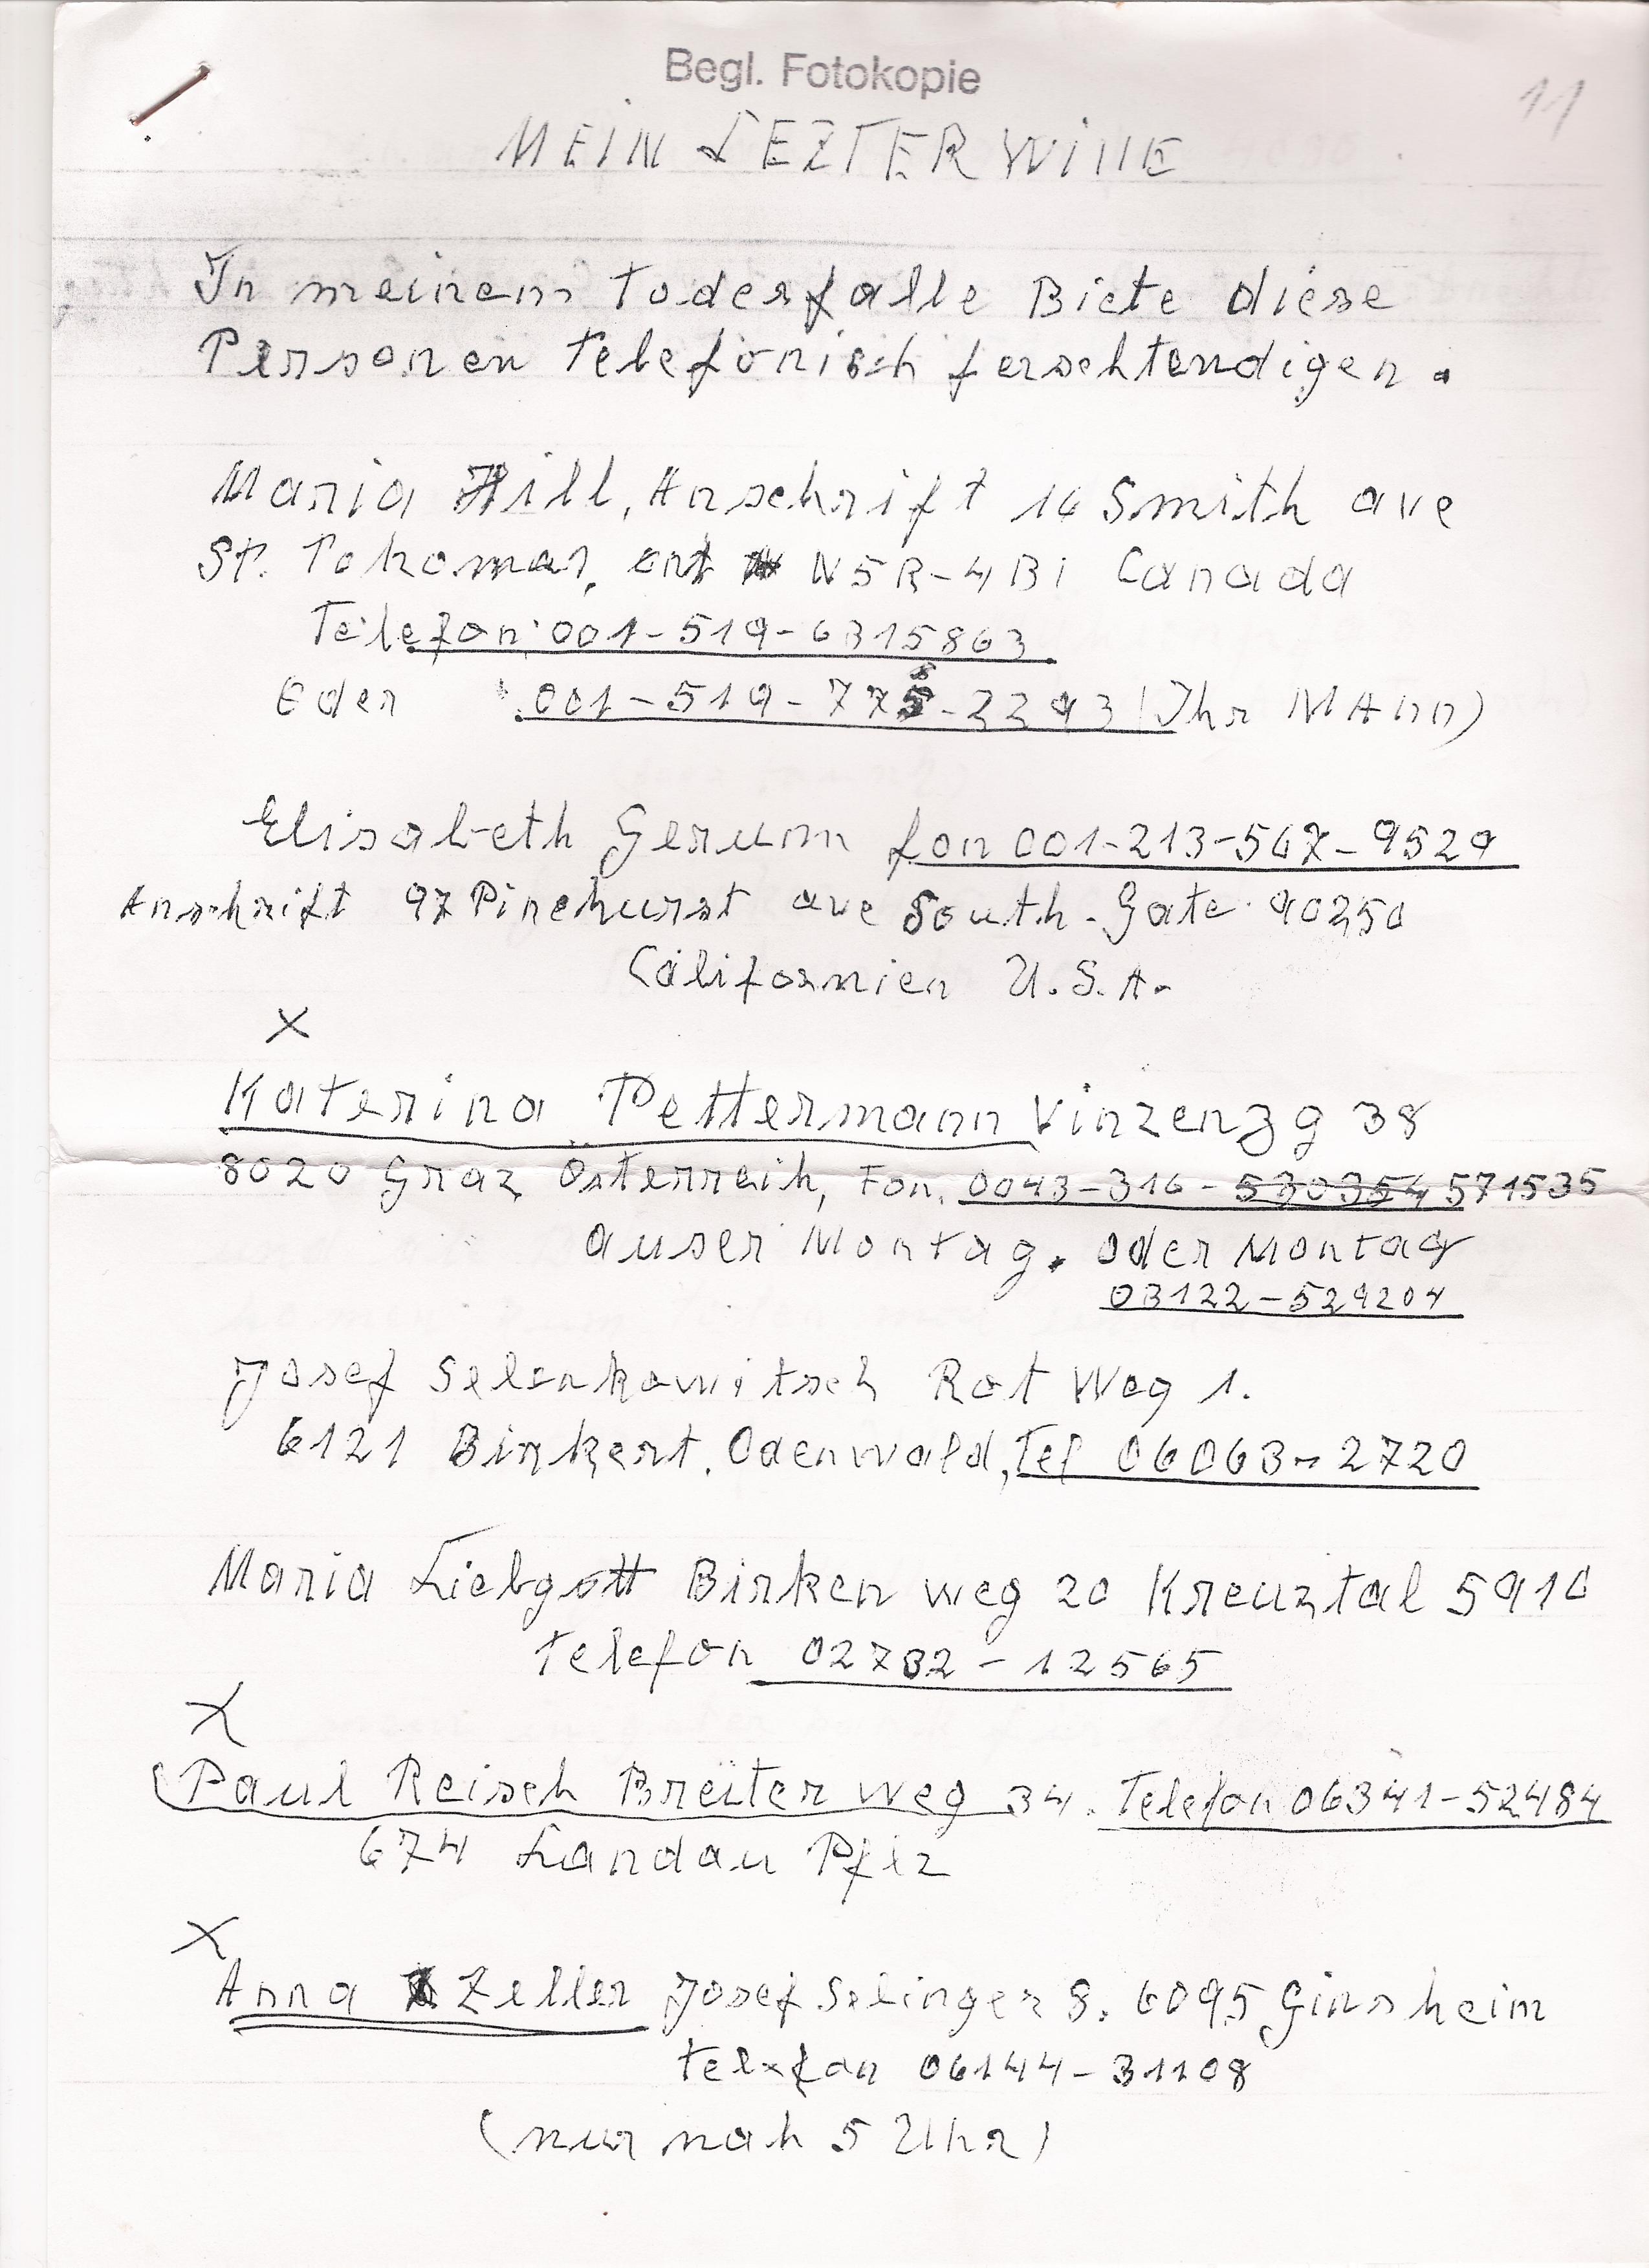 Begl. Fotokopie
11
MEIN LEZTER WillE
In meinem Toderfalle Biete diese
Personen Telefonisch ferschtendigen.
Maria Hill, Anschrift 14 Smith ave
St. Tohomas, ont N5R-4Bi Canada
Telefon: 001-519-6315863
Oder 001-519-775-2293 (Ihr MAnn)
Elisabeth Gerum fon 001-213-567-9529
Anschrift 97 Pinehurst ave South-Gate 90250
Californien U.S.A.
X
Katerina Pettermann Vinzenzg 38
8020 Graz Österreich, Fon. 0043-316-530354 571535
auser Montag. oder Montag
03122-529204
Josef Selenkowitsch Rot Weg 1.
6121 Birkert. Odenwald, Tel 06063-2720
Maria Liebgott Birken weg 20 Kreuztal 5910
Telefon 02732-12565
X
(Paul Reisch Breiter weg 34. Telefon 06341-52484
674 Landau Pflz
X
Anna Zeller Josef Selinger 8. 6095 Ginsheim
Telefon 06144-31108
(nur nah 5 Uhr)